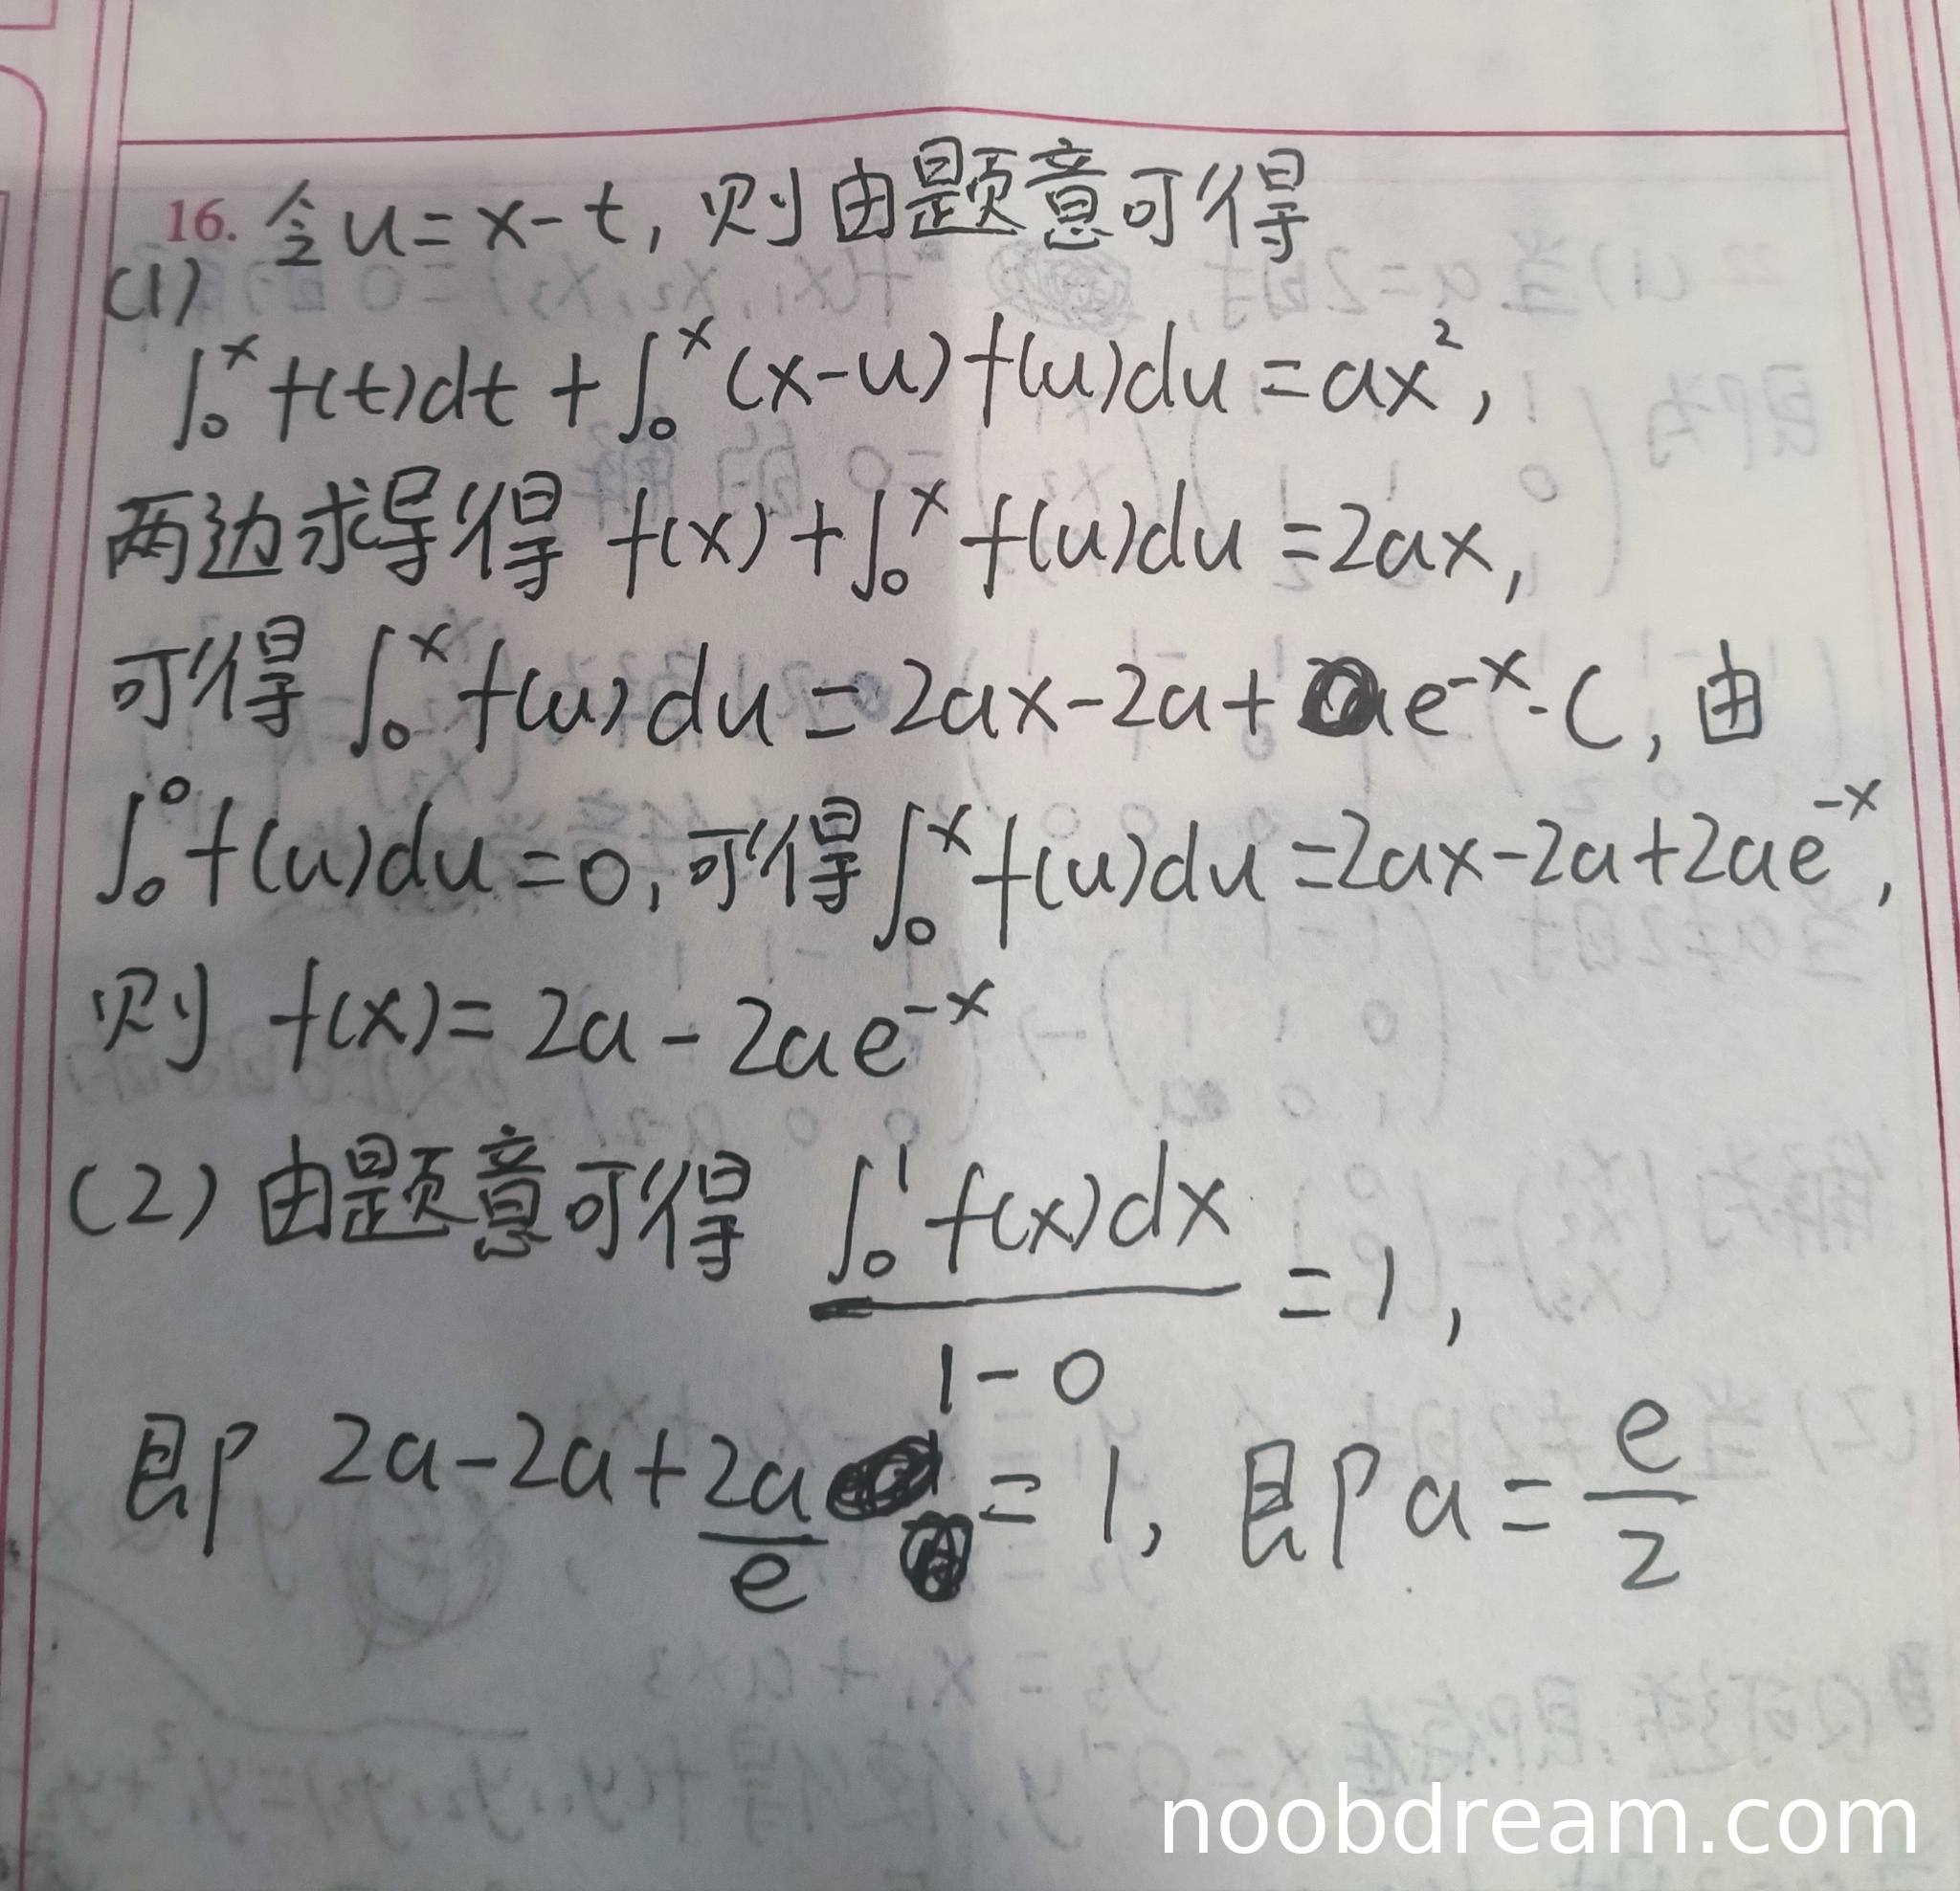 16. 令u=x-t, 则由题意可得
(1)
∫₀ˣf(t)dt+∫₀ˣ(x-u)f(u)du=ax²,
两边求导得 f(x)+∫₀ˣf(u)du=2ax,
可得∫₀ˣf(u)du=2ax-2a+ e⁻ˣ·C, 由
∫₀⁰f(u)du=0, 可得∫₀ˣf(u)du=2ax-2a+2ae⁻ˣ,
则 f(x)=2a-2ae⁻ˣ
(2) 由题意可得 ∫₀¹f(x)dx/(1-0)=1,
即 2a-2a+2a/e=1, 即a=e/2
noobdream.com